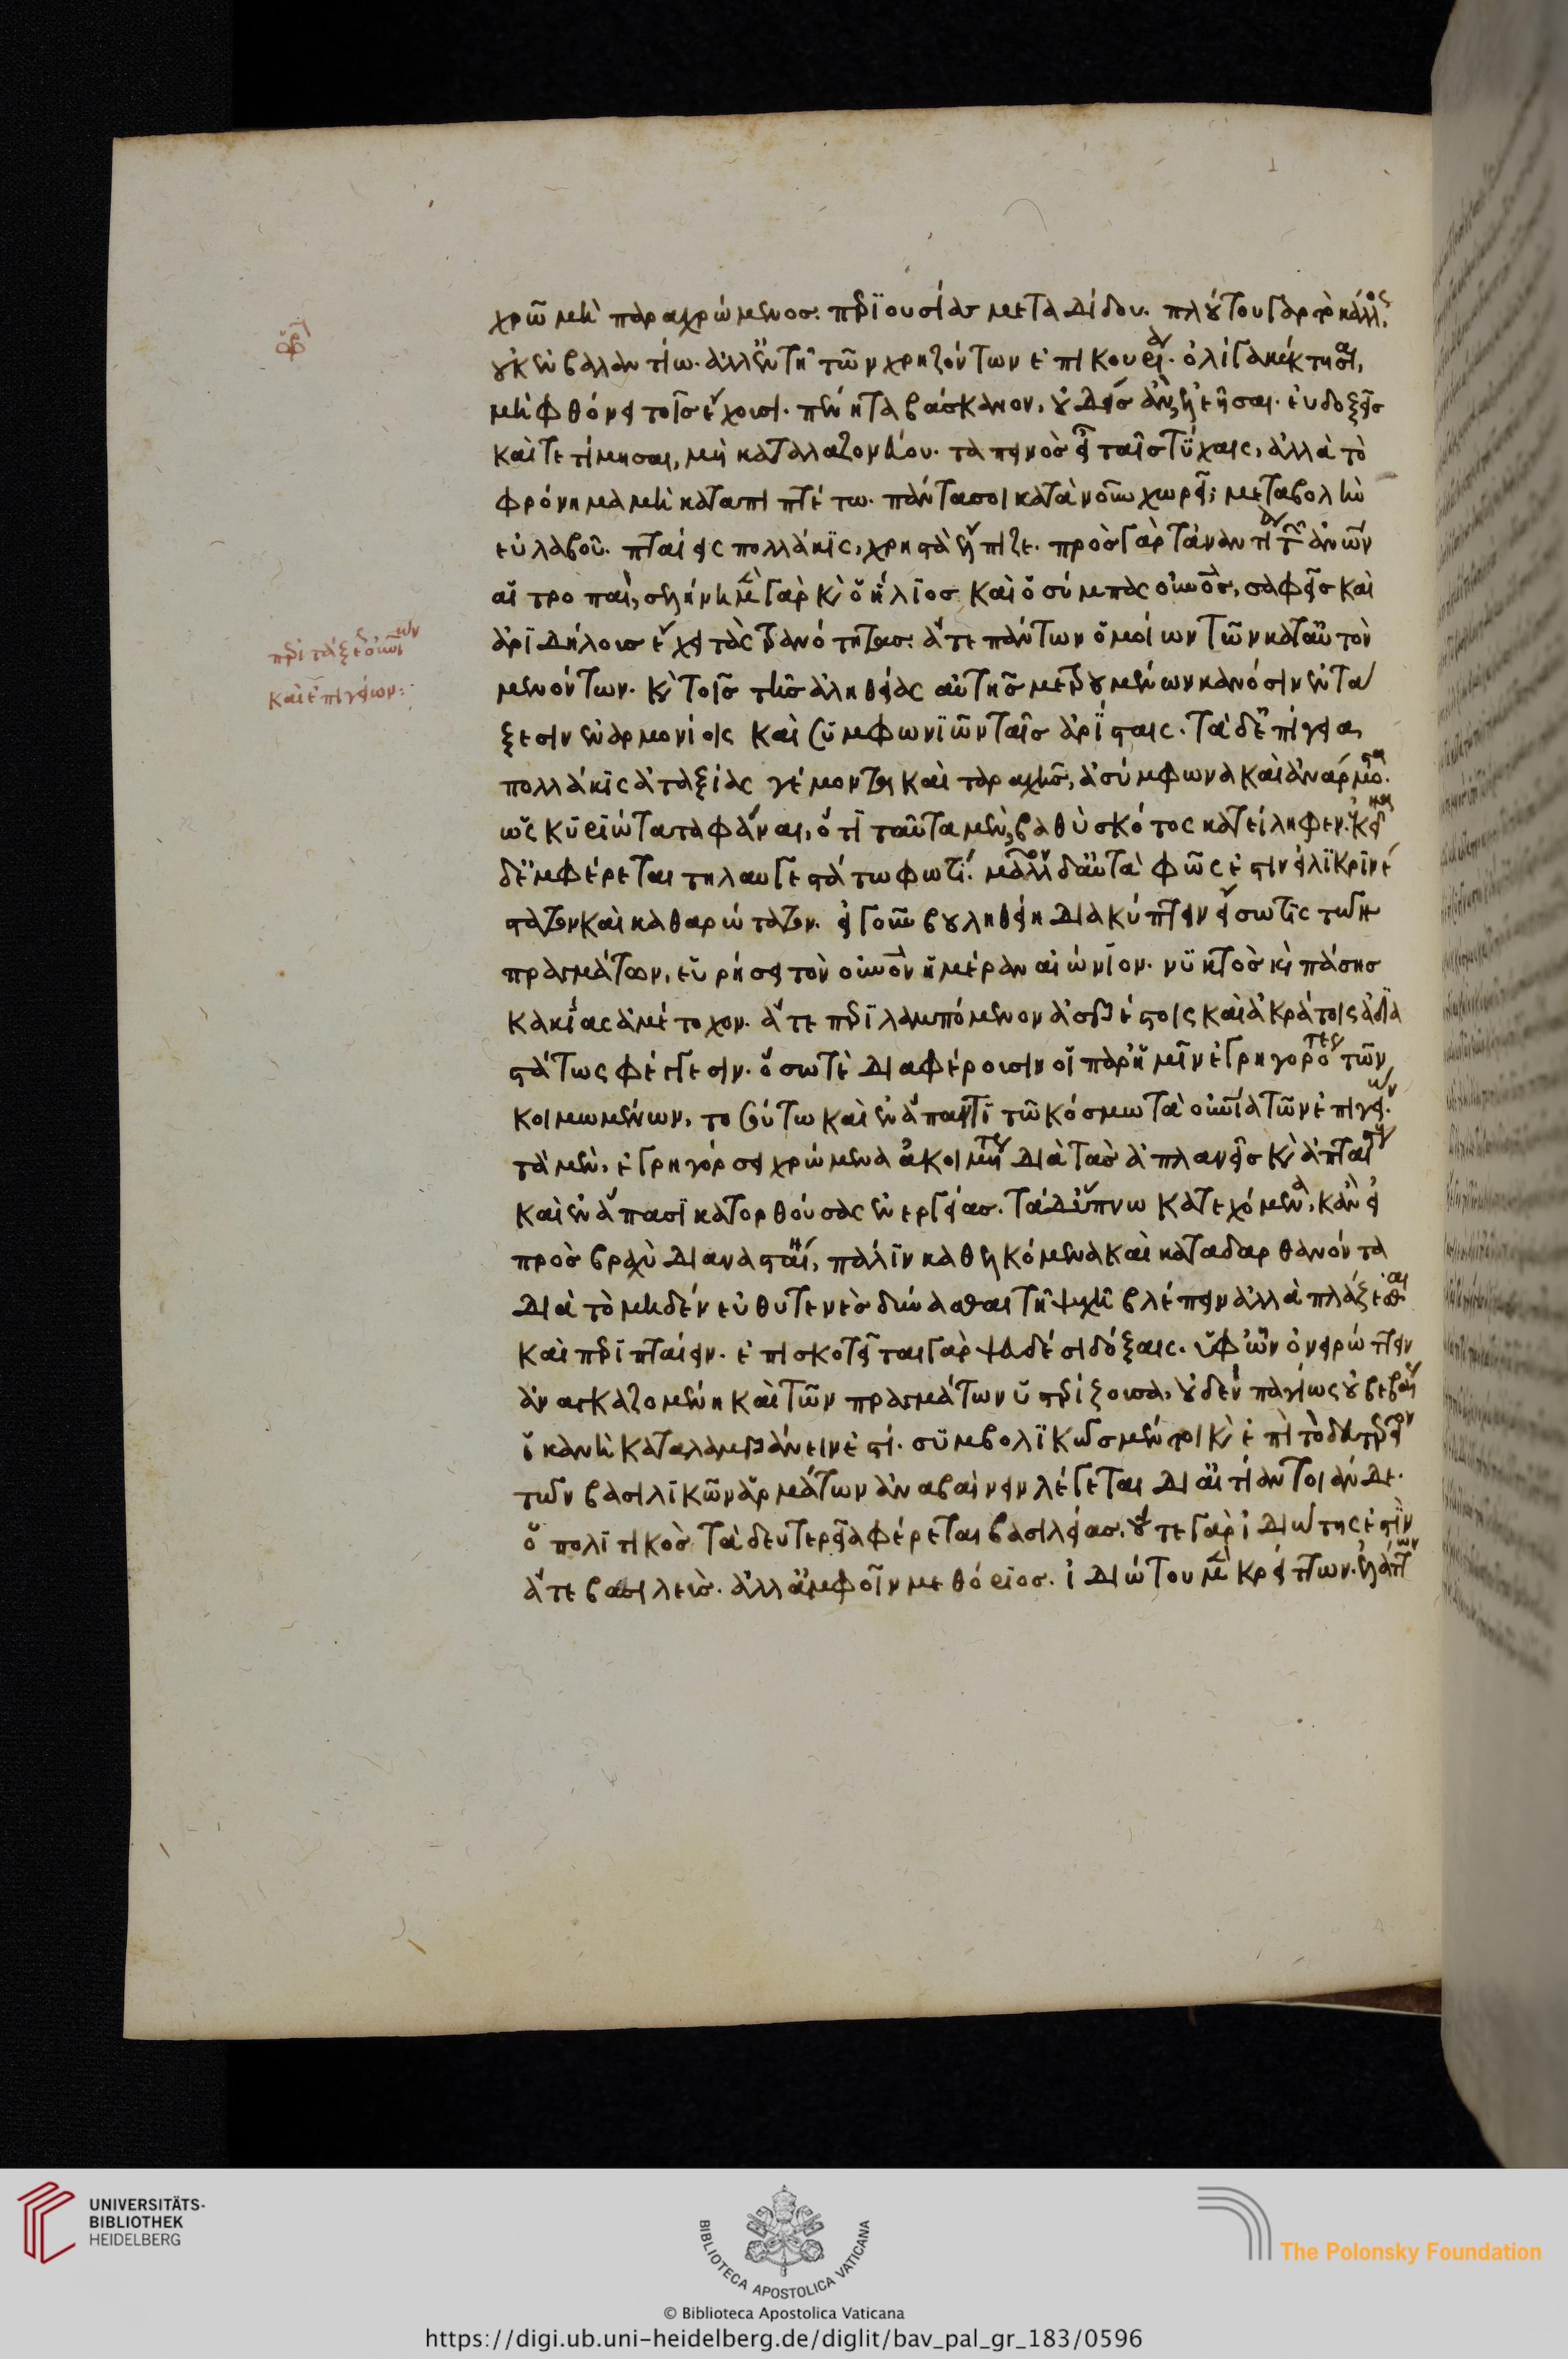 χρῶ μὴ παραχρώμενος· περιουσίας μεταδίδου· πλούτου γὰρ τὸ κάλλος
οὐκ ἐν βαλαντίω· ἀλλ' ἐν τῆ τῶν χρηζόντων ἐπικουρίαν· ὀλίγα κέκτησαι,
μὴ φθόνει τοῖς ἔχουσι· πένητα βάσκανον, οὐδεὶς ἂν ζητῆσαι· εὐδοξεῖς
καὶ τετίμησαι, μὴ καταλαζονεύου· ταπεινὸς εἶ ταῖς τύχαις, ἀλλὰ τὸ
φρόνημα μὴ καταπιπτέτω· πάντα σοι κατὰ νοῦν χωρεῖ; μεταβολὴν
εὐλαβοῦ· πταίεις πολλάκις, χρηστὰ ἔλπιζε· πρὸς γὰρ τἀναντία τῶν ἀνων
αἱ τροπαὶ, σελήνη μὲν γὰρ κὶ ὁ ἥλιος καὶ ὁ σύμπας οὐνος, σαφεῖς καὶ
ἀριδήλους ἔχει τὰς τρανότητας· ἅτε πάντων ὁμοίων τῶν κατ' αὐτὸν
μενόντων· κὶ τοῖς τῆς ἀληθείας αὐτῆς μετρουμένων κανόσιν ἐν τά
ξεσιν ἐναρμονίοις καὶ συμφωνιῶν ταῖς ἀρίσταις· τὰ δ' ἐπίγεια,
πολλάκις ἀταξίας γέμοντα καὶ ταραχῆς, ἀσύμφωνα καὶ ἀνάρμοστα·
ὡς κυριώτατα φάναι, ὅτι ταῦτα μὲν, βαθὺ σκότος κατείληφεν· ἐκεῖνα
δ' ἐμφέρεται τηλαυγεστάτω φωτί· μᾶλλον δ' αὐτὰ φῶς ἐστιν εἰλικρινέ
στατον καὶ καθαρώτατον· εἰ γοῦν βουληθείη διακύπτειν εἴσω τις τῶν
πραγμάτων, εὑρήσει τὸν οὐνον ἡμέραν αἰώνιον· νυκτὸς κὶ πάσης
κακίας ἀμέτοχον· ἅτε περιλαμπόμενον ἀσβέστοις καὶ ἀκράτοις ἀδια
στάτως φέγγεσιν· ὅσω τὲ διαφέρουσιν οἱ παρ' ἡμῖν ἐγρηγορότες τῶν
κοιμωμένων, τοσούτω καὶ ἐν ἅπαντι τῶ κόσμω τὰ οὐνια τῶν ἐπιγείων·
τὰ μὲν, ἐγρηγόρσει χρώμενα ἀκοιμήτω διὰ τὰς ἀπλανεῖς κὶ ἀπταίστους
καὶ ἐν ἅπασι κατορθούσας ἐνεργείας· τὰ δ' ὕπνω κατεχόμενα, κἂν εἰ
πρὸς βραχὺ διανασταίη, πάλιν καθελκόμενα καὶ καταδαρθάνοντα
διὰ τὸ μηδὲν εὐθυτενὲς δύνασθαι τῆ ψυχῆ βλέπειν ἀλλὰ πλάζεσθαι
καὶ περιπταίειν· ἐπισκοτεῖται γὰρ ψευδέσι δόξαις· ὑφ' ὧν ὀνειρώττειν
ἀναγκαζομένη καὶ τῶν πραγμάτων ὑστερίζουσα, οὐδὲν παγίως οὐ βεβαίως
ἱκανὴ καταλαμβάνειν ἐστί· συμβολικῶς μέντοι κὶ ἐπὶ τὸ δευτερεῖον
τῶν βασιλικῶν ἁρμάτων ἀναβαίνειν λέγεται δι' αἰτίαν τοιάνδε·
ὁ πολιτικὸς τὰ δευτερεῖα φέρεται βασιλείας· οὔτε γὰρ ἰδιώτης ἐστὶν
ἅτε βασιλεὺς· ἀλλ' ἀμφοῖν μεθόριος· ἰδιώτου μὲν κρείττων· ἐλάττων
ὡρ
περὶ τάξεως οὐνίων
καὶ ἐπιγείων:
UNIVERSITÄTS-
BIBLIOTHEK
HEIDELBERG
BIBLIOTECA APOSTOLICA VATICANA
The Polonsky Foundation
© Biblioteca Apostolica Vaticana
https://digi.ub.uni-heidelberg.de/diglit/bav_pal_gr_183/0596